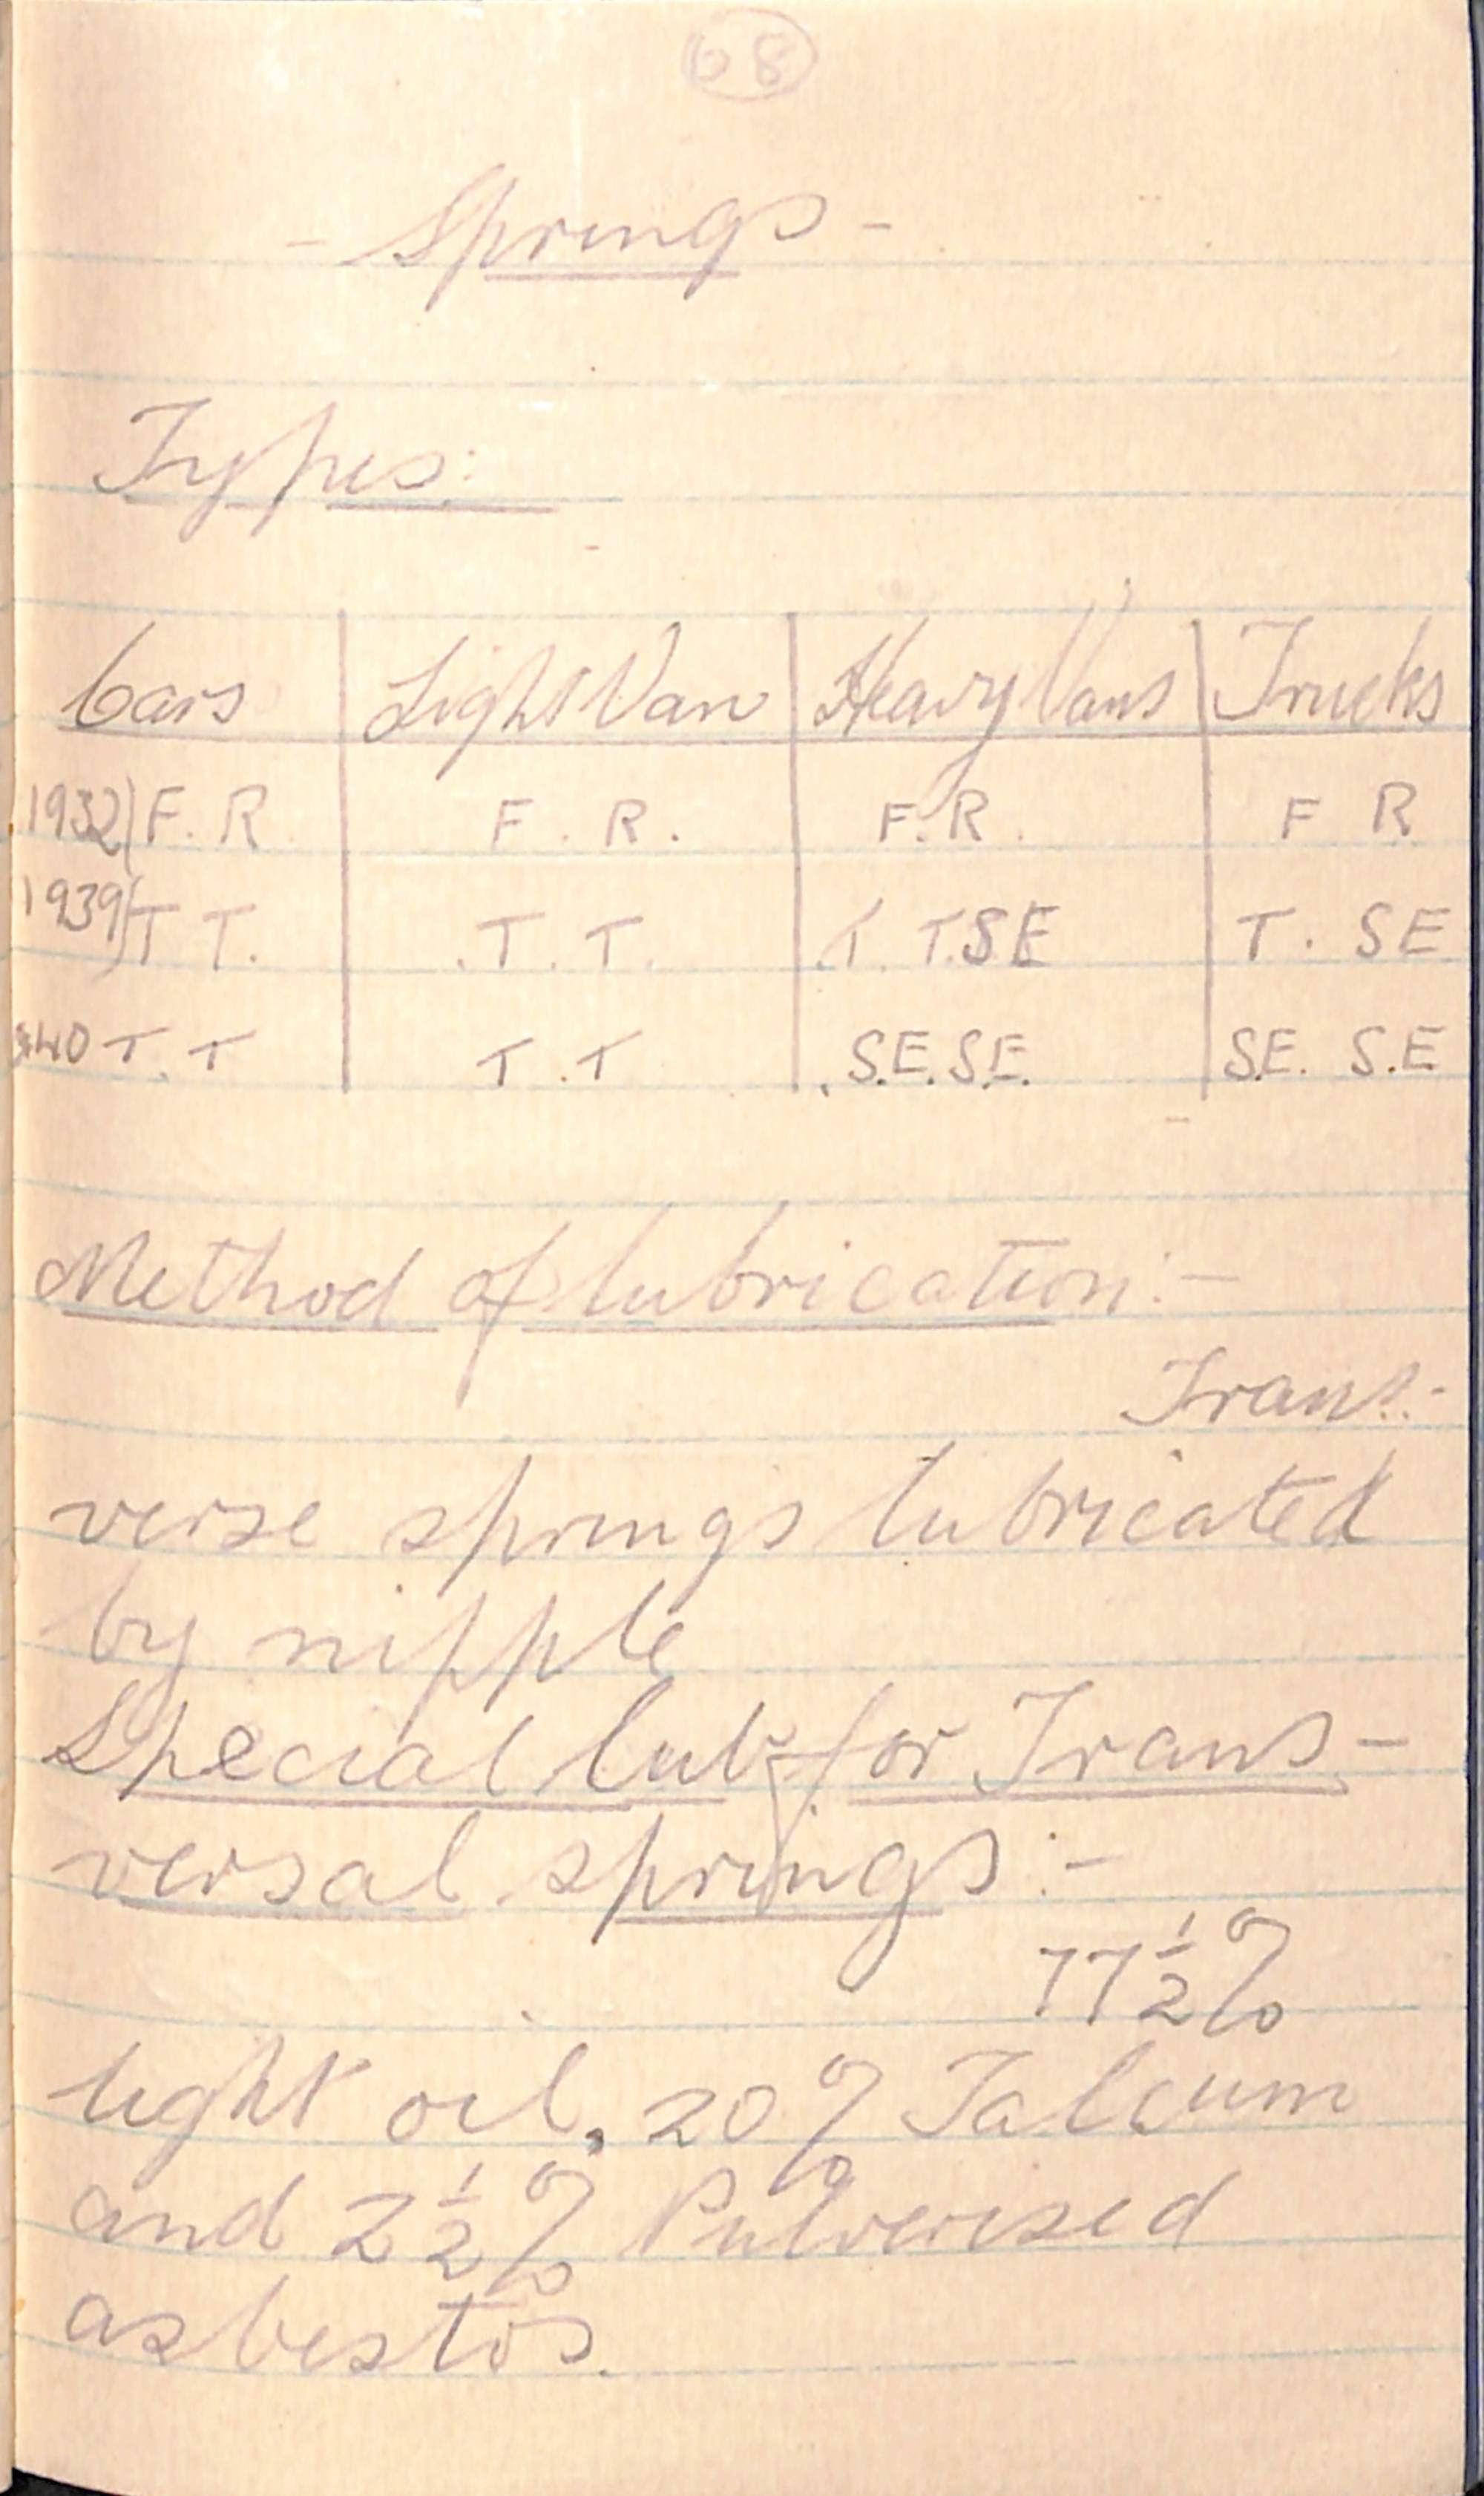 68
- Springs -
Types:
Cars | Light Van | Heavy Vans | Trucks
1932) F. R | F. R. | F. R. | F R
1939) T T. | T. T. | T. T.SE | T. SE
40 T. T | T. T | S.E. S.E. | S.E. S.E
Method of lubrication:-
Trans-
verse springs lubricated
by nipple
Special lub. for Trans-
versal springs:-
77½%
light oil, 20% Talcum
and 2½% Pulverised
asbestos.